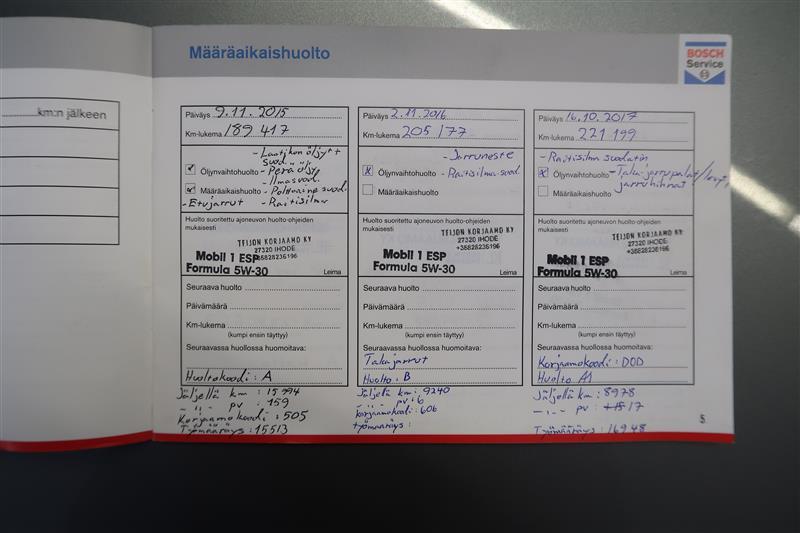 Määräaikaishuolto
BOSCH
Service
km:n jälkeen
Päiväys 9.11.2015
Km-lukema 189 417
- Laatikon öljyt +
suod.
Öljynvaihtohuolto - Perä öljy
- Ilmasuod.
Määräaikaishuolto - Polttoaine suod.
- Etujarrut - Raitisilma
Huolto suoritettu ajoneuvon huolto-ohjeiden
mukaisesti
TEIJON KORJAAMO KY
27320 IHODE
+35828236196
Mobil 1 ESP
Formula 5W-30
Leima
Seuraava huolto
Päivämäärä
Km-lukema
(kumpi ensin täyttyy)
Seuraavassa huollossa huomoitava:
Huoltokoodi: A
Jäljellä km: 15994
- ii - pv: 159
Korjaamokoodi: 505
Työmääräys: 15513
Päiväys 2.11.2016
Km-lukema 205 177
- Jarruneste
Öljynvaihtohuolto - Raitisilma-suod.
Määräaikaishuolto
Huolto suoritettu ajoneuvon huolto-ohjeiden
mukaisesti
TEIJON KORJAAMO KY
27320 IHODE
+35828236196
Mobil 1 ESP
Formula 5W-30
Leima
Seuraava huolto
Päivämäärä
Km-lukema
(kumpi ensin täyttyy)
Seuraavassa huollossa huomoitava:
Takajarrut
Huolto: B
Jäljellä km: 9240
- ii - pv: 6
Korjaamokoodi: 606
Työmääräys:
Päiväys 16.10.2017
Km-lukema 221 199
- Raitisilma suodatin
Öljynvaihtohuolto - Taka-jarrupalat/levyt,
Määräaikaishuolto jarruhihnat
Huolto suoritettu ajoneuvon huolto-ohjeiden
mukaisesti
TEIJON KORJAAMO KY
27320 IHODE
+35828236196
Mobil 1 ESP
Formula 5W-30
Leima
Seuraava huolto
Päivämäärä
Km-lukema
(kumpi ensin täyttyy)
Seuraavassa huollossa huomoitava:
Korjaamokoodi: DOD
Huolto A1
Jäljellä km: 8978
- ii - pv: 17
Työmääräys: 16948
5